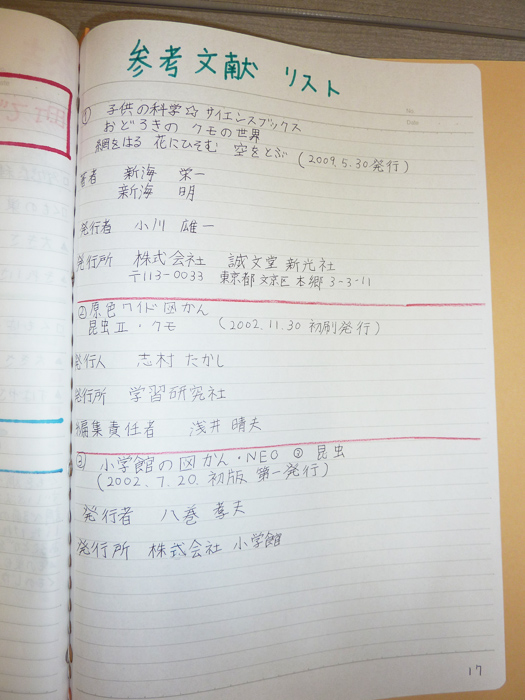 参考文献 リスト
No.
Date
① 子供の科学☆サイエンスブックス
おどろきの クモの世界
網をはる 花にひそむ 空をとぶ (2009.5.30発行)
著者 新海 栄一
新海 明
発行者 小川 雄一
発行所 株式会社 誠文堂 新光社
〒113-0033 東京都 文京区 本郷 3-3-11
②原色ワイド図かん
昆虫Ⅱ・クモ (2002.11.30 初刷発行)
発行人 志村 たかし
発行所 学習研究社
編集責任者 浅井 晴夫
③ 小学館の図かん・NEO ③ 昆虫
(2002.7.20. 初版 第一発行)
発行者 八巻 孝夫
発行所 株式会社 小学館
17